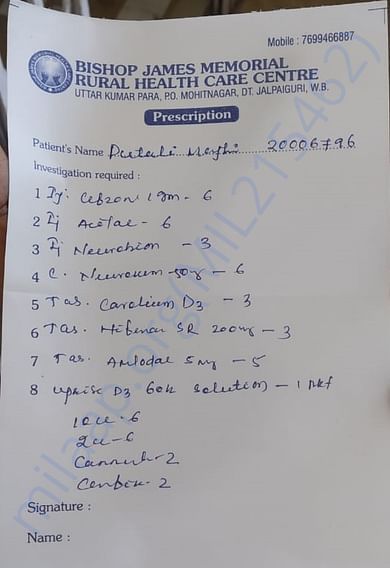 Mobile : 7699466887
BISHOP JAMES MEMORIAL
RURAL HEALTH CARE CENTRE
UTTAR KUMAR PARA, P.O. MOHITNAGAR, DT. JALPAIGURI, W.B.
Prescription
Patient's Name Putali 20006796
Investigation required :
1 Inj: 1gm - 6
2 Inj - 6
3 Inj Neurobion - 3
4 C. 50mg - 6
5 Tab. D3 - 3
6 Tab. SR 200mg - 3
7 Tab. Amlodac 5mg - 5
8 Uprise D3 60k solution - 1
10cc - 6
2cc - 6
- 2
- 2
Signature :
Name :
milaap.org(MIL215462)